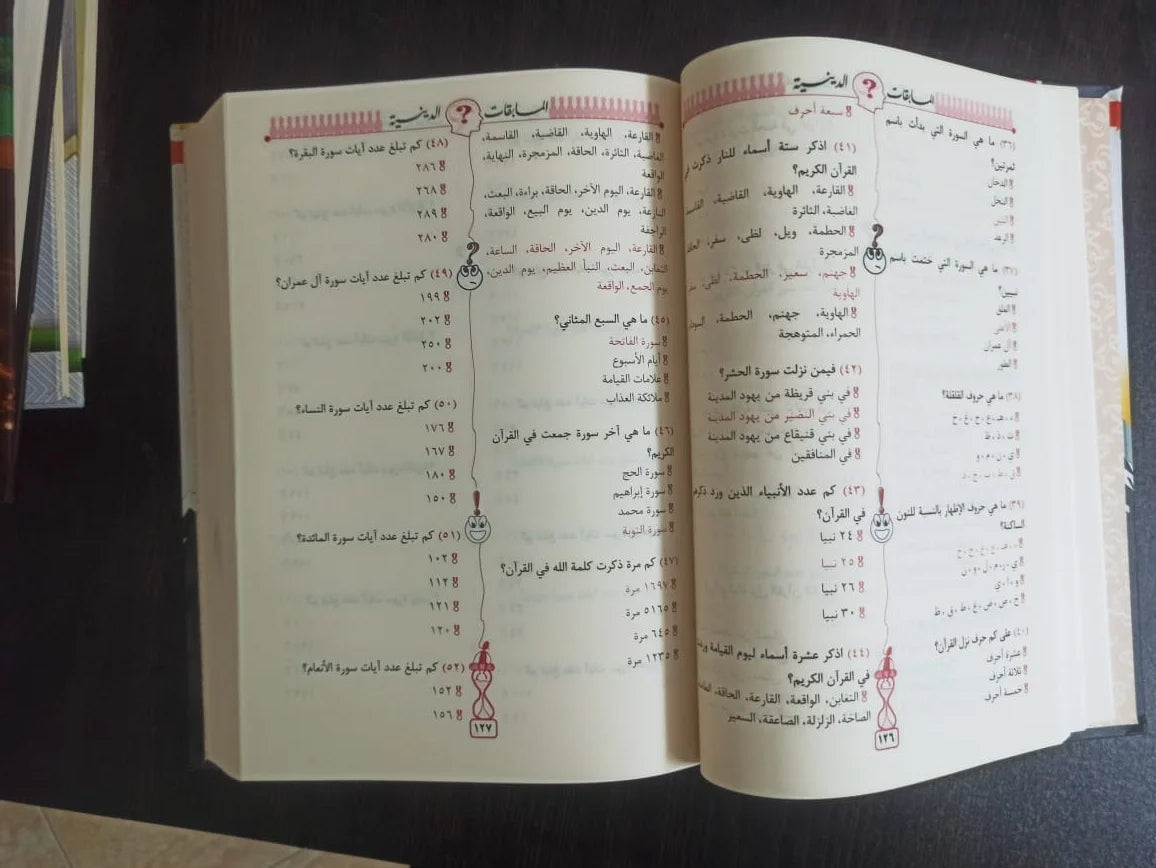 المسابقات الدينية
(٣٦) ما هي السورة التي بدأت باسم
ثمرتين؟
الدخان
النحل
التين
الرعد
(٣٧) ما هي السورة التي ختمت باسم
نبيين؟
العلق
الأعلى
آل عمران
الطور
(٣٨) ما هي حروف القلقلة؟
ء ، هـ ، ع ، ح ، غ ، خ
ث ، ذ ، ظ
ي ، ن ، م ، و
ق ، ط ، ب ، ج ، د
(٣٩) ما هي حروف الإظهار بالنسبة للنون
الساكنة؟
ء ، هـ ، ع ، غ ، ح ، خ
ي ، ر ، م ، ل ، و ، ن
و ، ا ، ي
خ ، ص ، ض ، غ ، ط ، ق ، ظ
(٤٠) على كم حرف نزل القرآن؟
عشرة أحرف
ثلاثة أحرف
خمسة أحرف
سبعة أحرف
(٤١) اذكر ستة أسماء للنار ذكرت في
القرآن الكريم؟
القارعة، الهاوية، القاضية،
الغاضبة، الثائرة
الحطمة، ويل، لظى، سقر،
المزمجرة
جهنم، سعير، الحطمة، لظى،
الهاوية
الهاوية، جهنم، الحطمة،
الحمراء، المتوهجة
(٤٢) فيمن نزلت سورة الحشر؟
في بني قريظة من يهود المدينة
في بني النضير من يهود المدينة
في بني قنيقاع من يهود المدينة
في المنافقين
(٤٣) كم عدد الأنبياء الذين ورد ذكرهم
في القرآن؟
٢٤ نبيا
٢٥ نبيا
٢٦ نبيا
٣٠ نبيا
(٤٤) اذكر عشرة أسماء ليوم القيامة
في القرآن الكريم؟
التغابن، الواقعة، القارعة، الحاقة،
الصاخة، الزلزلة، الصاعقة، السعير
١٢٦
المسابقات الدينية
القارعة، الهاوية، القاضية، القاسمة،
الغاضبة، الثائرة، الحاقة، المزمجرة، النهاية،
الواقعة
القارعة، اليوم الآخر، الحاقة، براءة، البعث،
النازعة، يوم الدين، يوم البيع، الواقعة،
الراجفة
القارعة، اليوم الآخر، الحاقة، الساعة،
التغابن، البعث، النبأ العظيم، يوم الدين،
يوم الجمع، الواقعة
(٤٥) ما هي السبع المثاني؟
سورة الفاتحة
أيام الأسبوع
علامات القيامة
ملائكة العذاب
(٤٦) ما هي آخر سورة جمعت في القرآن
الكريم؟
سورة الحج
سورة إبراهيم
سورة محمد
سورة التوبة
(٤٧) كم مرة ذكرت كلمة الله في القرآن؟
١٦٩٧ مرة
٥١٦٥ مرة
٦٤٥ مرة
١٢٣٥ مرة
(٤٨) كم تبلغ عدد آيات سورة البقرة؟
٢٨٦
٢٦٨
٢٨٩
٢٨٠
(٤٩) كم تبلغ عدد آيات سورة آل عمران؟
١٩٩
٢٠٢
٢٥٠
٢٠٠
(٥٠) كم تبلغ عدد آيات سورة النساء؟
١٧٦
١٦٧
١٨٠
١٥٠
(٥١) كم تبلغ عدد آيات سورة المائدة؟
١٠٢
١١٢
١٢١
١٢٠
(٥٢) كم تبلغ عدد آيات سورة الأنعام؟
١٥٢
١٥٦
١٢٧